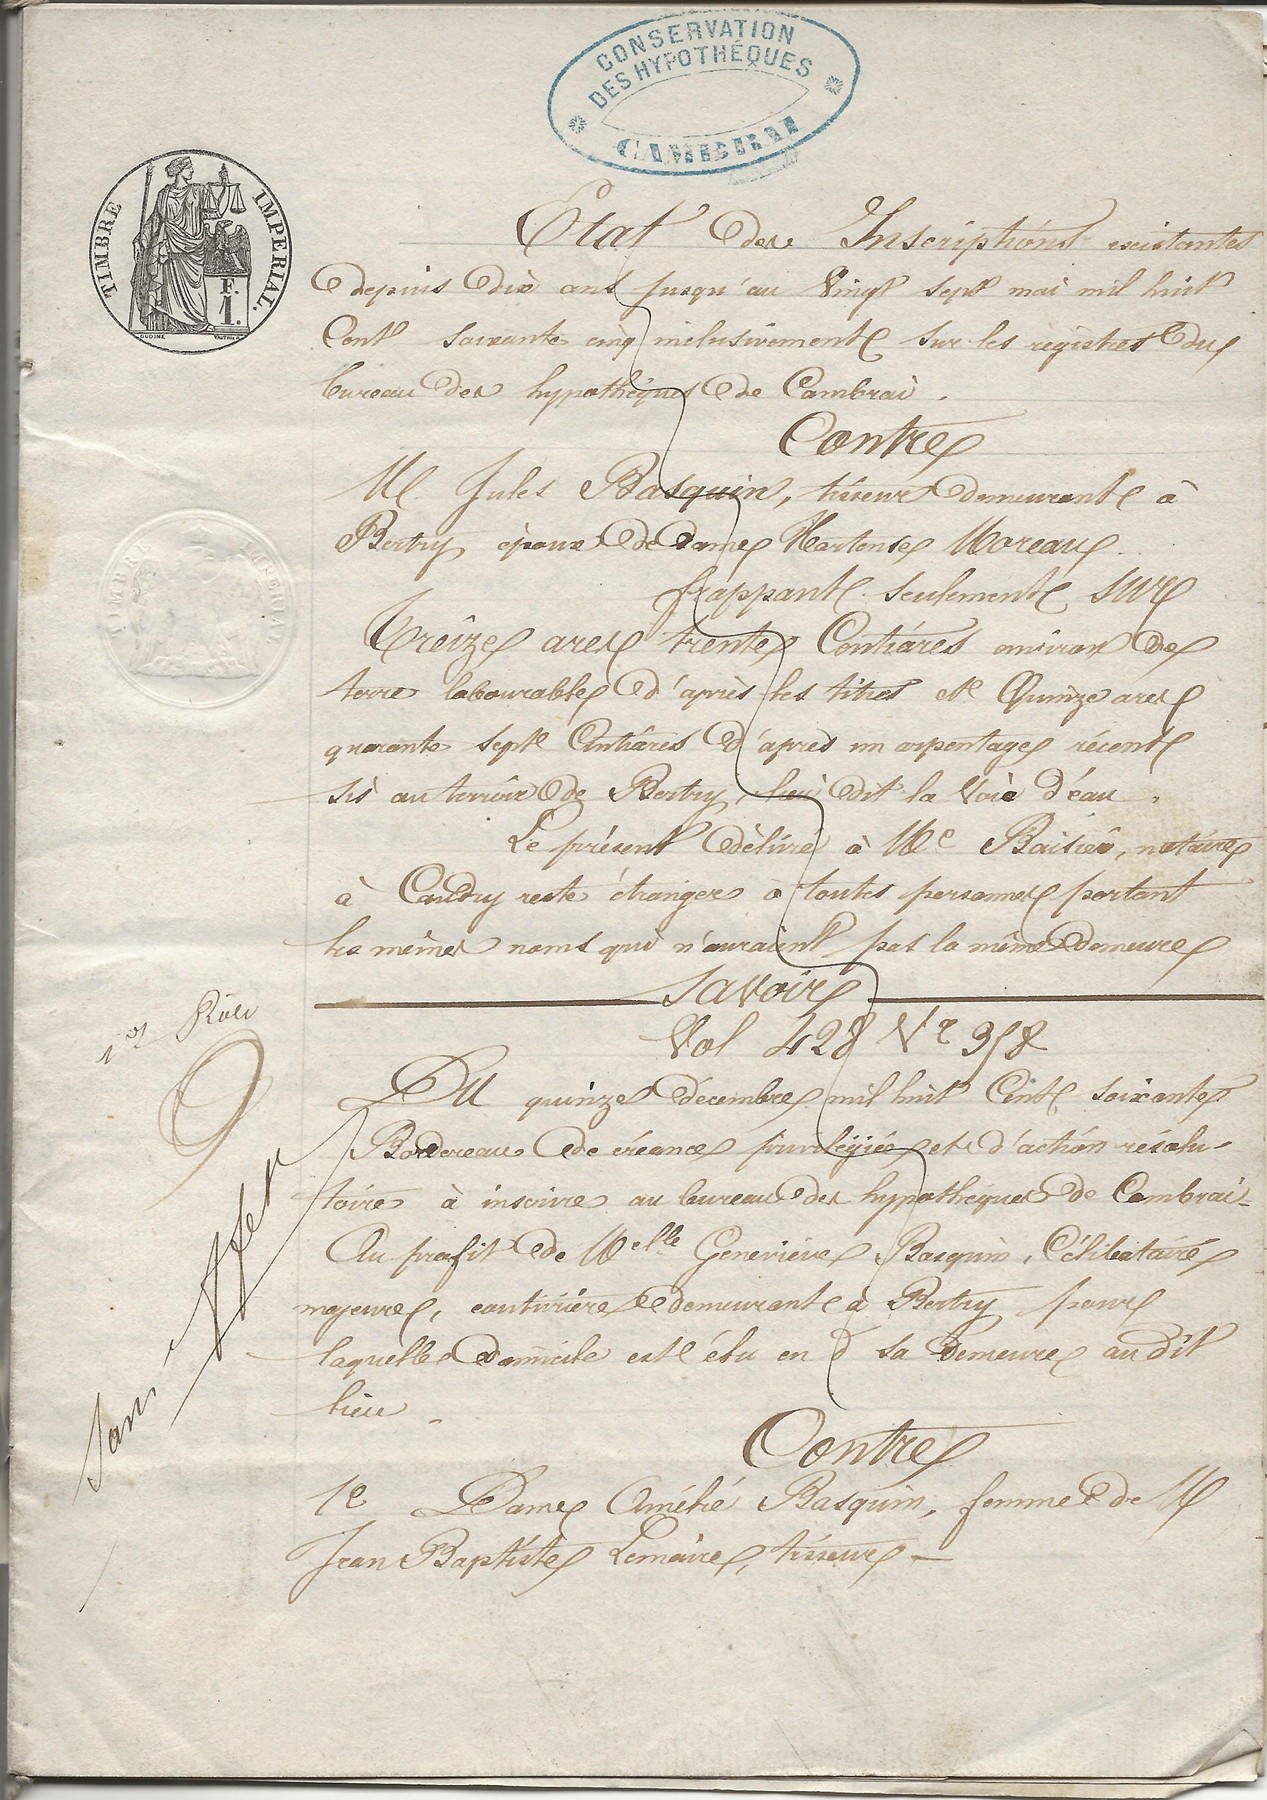 CONSERVATION
DES HYPOTHÉQUES
CAMBRAI
TIMBRE IMPERIAL.
F.
1.
Etat des Inscriptions existantes
depuis dix ans jusqu'au Vingt sept mai mil huit
Cent soixante cinq inclusivement sur les registres du
bureau des hypothèques de Cambrai.
Contre
M. Jules Basquin, tisseur demeurant à
Bertry époux de Dame Hortense Moreau.
frappant seulement sur
Treize ares trente Centiares environ de
terre labourable d'après les titres et Quinze ares
quarante sept Centiares d'après un arpentage récent
sis au terroir de Bertry, lieu dit la Voie d'eau.
Le présent délivré à Me notaire
à Caudry reste étranger à toutes personnes portant
les mêmes noms qui n'auraient pas la même demeure
Savoir
1er Rôle
Vol 428 No 358
Du quinze décembre mil huit Cent soixante
Bordereau de créance privilégiée et d'action résolu-
toire à inscrire au bureau des hypothèques de Cambrai-
Au profit de Melle Geneviève Basquin, Célibataire
majeure, couturière demeurant à Bertry pour
laquelle domicile est élu en sa demeure au dit
lieu.
Contre
1e Dame Amélie Basquin, femme de M
Jean Baptiste Lemaire, tisseur —